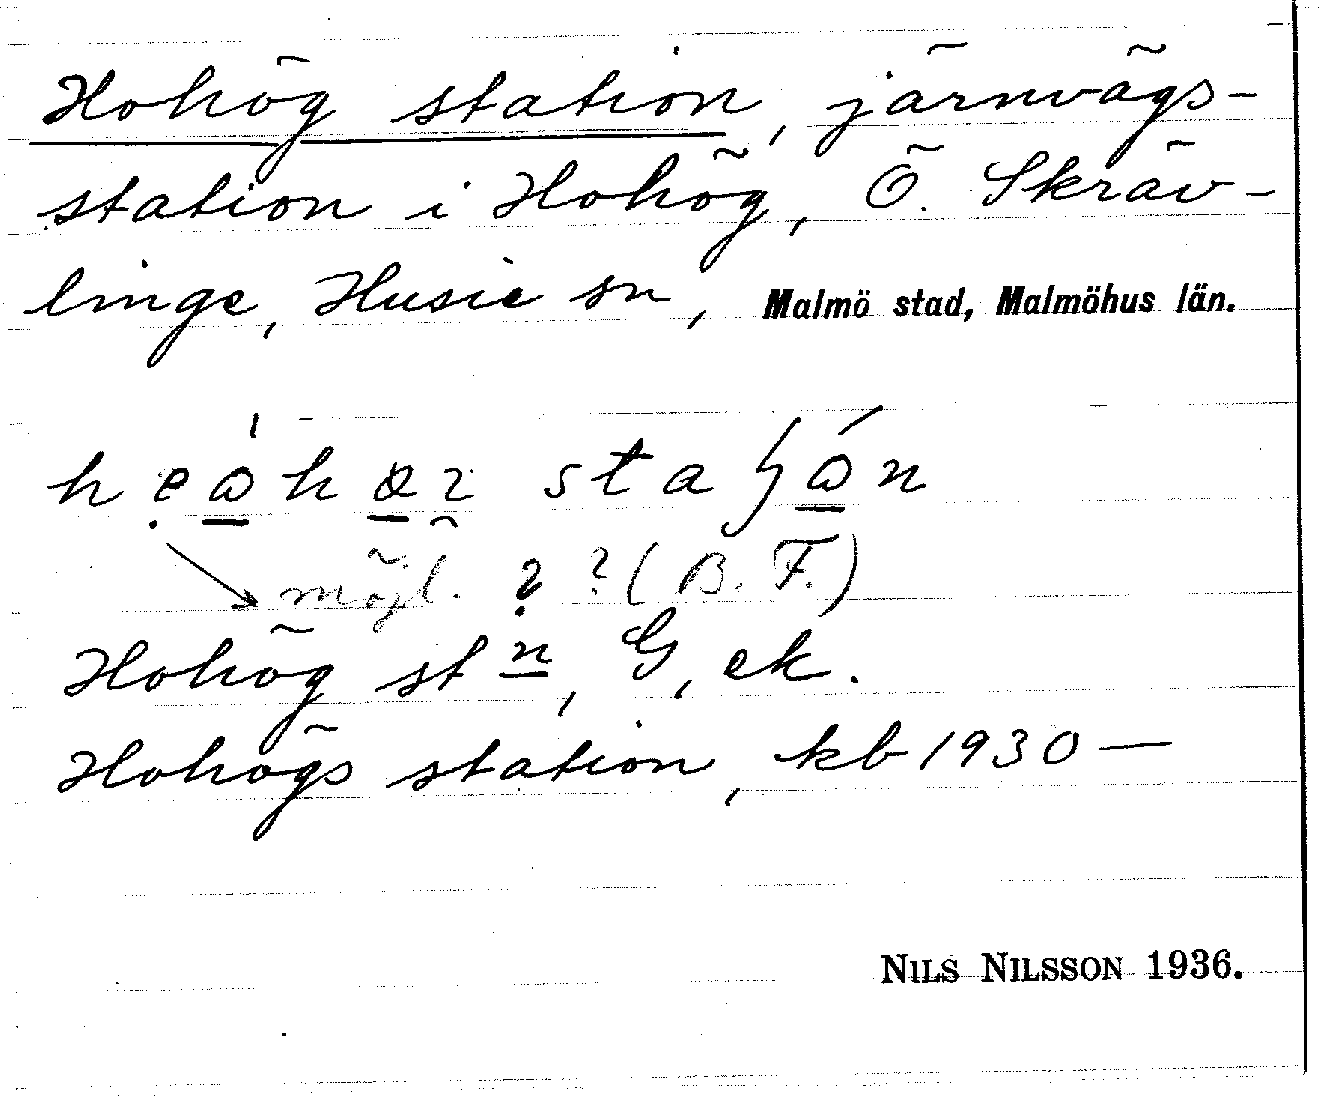 Hohög station, järnvägs-
station i Hohög, Ö. Skräv-
linge, Husie sn, Malmö stad, Malmöhus län.
möjl. ? ? (B. F.)
Hohög stn, G, ek.
Hohögs station, kb 1930—
NILS NILSSON 1936.